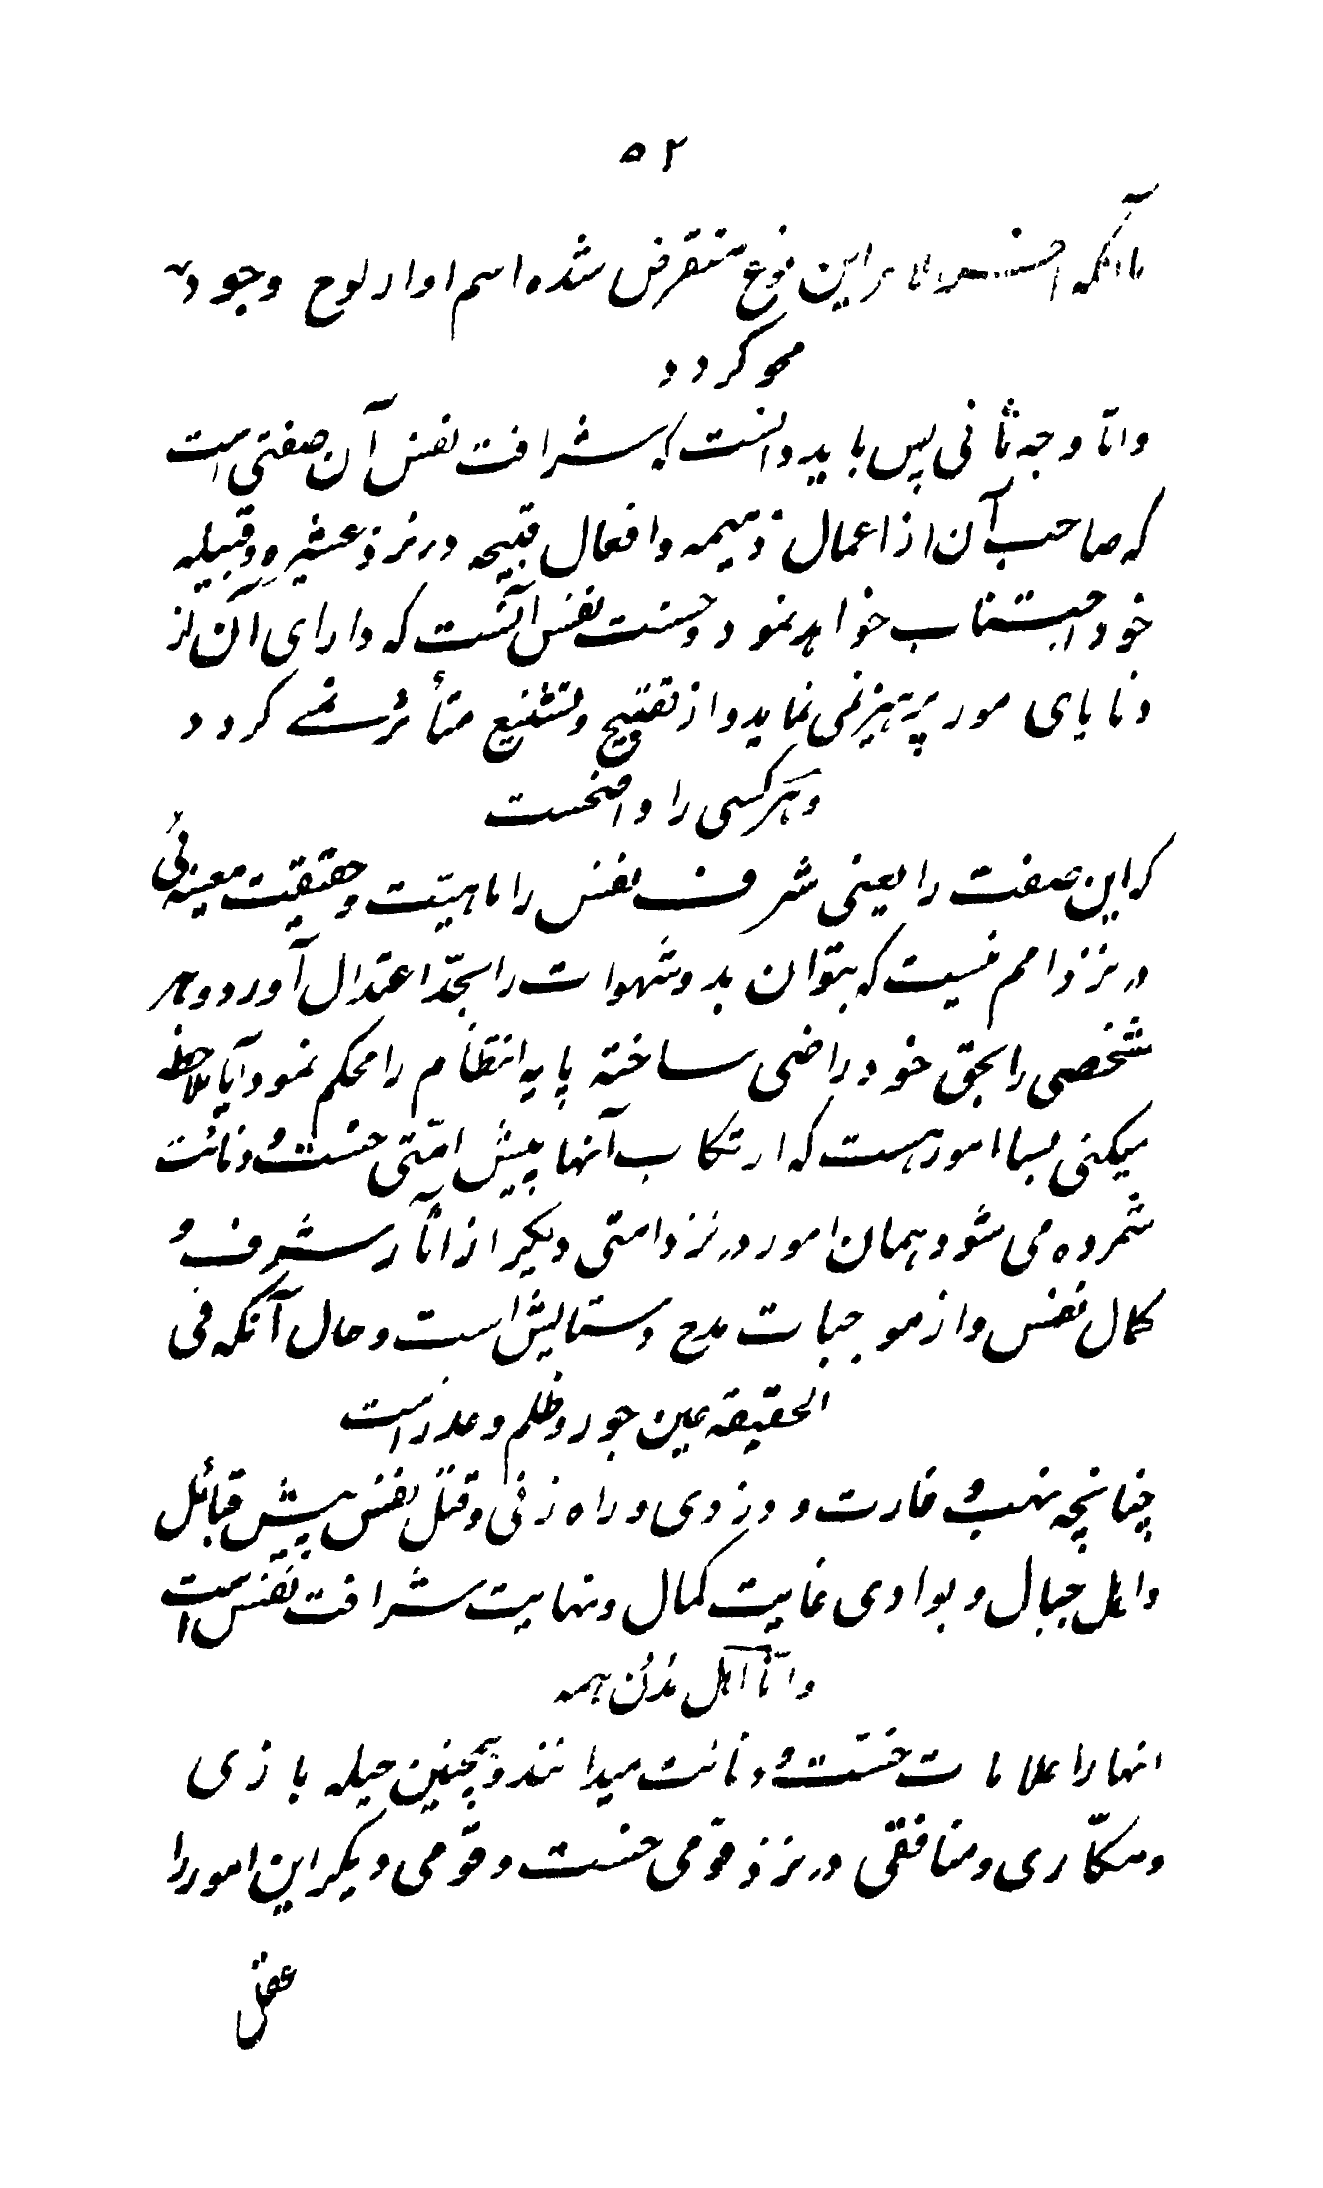 ۵۲
تا آنکه این نوع منقرض شده اسم او از لوح وجود
محو کردد
و امّا وجه ثانی پس باید دانست که شرافت نفس آن صفتی است
که صاحب آن از اعمال ذمیمه و افعال قبیحه در نزد عشیره و قبیله
خود اجتناب خواهد نمود و خسّت نفس آنست که دارای آن از
دنایای امور پرهیز نمی نماید و از تقبیح و تشنیع متأثر نمے کردد
و هر کسی را واضحست
که این صفت را یعنی شرف نفس را ماهیّت و حقیقت معینه ئی
در نزد امم نیست که بتوان بدو شهوات را بحدّ اعتدال آورد و هر
شخصی را بحق خود راضی ساخته پایه انتظام را محکم نمود آیا ملاحظه
میکنی بسا امور هست که ارتکاب آنها پیش امّتی خسّت و دنائت
شمرده می شود و همان امور در نزد امتی دیکر از آثار شرف و
کمال نفس و از موجبات مدح و ستایش است و حال آنکه فی
الحقیقه عین جور و ظلم و غدر است
چنانچه نهب و غارت و دزدی و راه زنی و قتل نفس پیش قبائل
و اهل جبال و بوادی غایت کمال و نهایت شرافت نفس است
و امّا اهل مُدُن همه
انها را علامات خسّت و دنائت میدانند و همچنین حیله بازی
و مکّاری و منافقی در نزد قومی خسّت و قومی دیکر این امور را
عقل